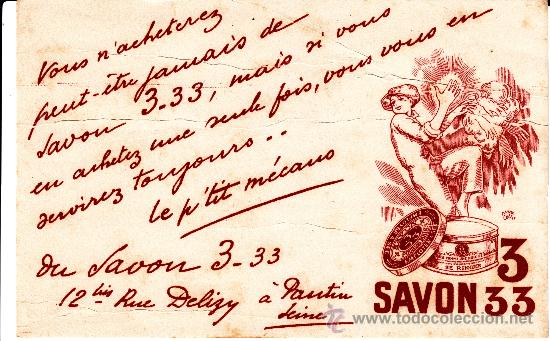 Vous n'achèterez
peut-être jamais de
Savon 3-33, mais si vous
en achetez une seule fois, vous vous en
servirez toujours..
le p'tit mécano
du Savon 3-33
12 bis Rue Delizy à Pantin
Seine
SAVON 3
33
www.todocoleccion.net